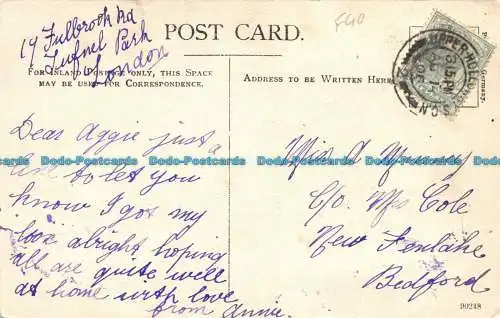 19 Fulbrook Rd
Tufnel Park
London
POST CARD.
FOR INLAND POSTAGE ONLY, THIS SPACE
MAY BE USED FOR CORRESPONDENCE.
ADDRESS TO BE WRITTEN HERE
£40
UPPER HOLLOWAY
8.15 PM
Germany.
Dear Aggie just a
line to let you
know I got my
box alright hoping
all are quite well
at home with love
from Annie.
Miss A
C/o Mrs Cole
New Fenlake
Bedford
90248
Dodo-Postcards Dodo-Postcards Dodo-Postcards Dodo-Postcards Dodo-Postcards